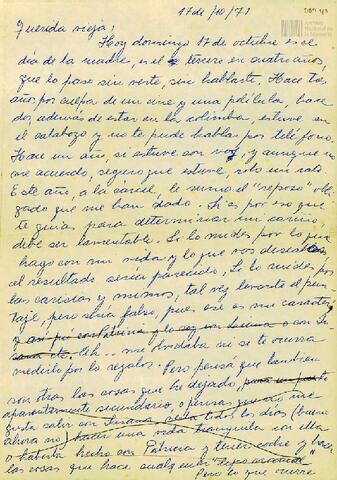 17 de/10/71
Archivo
Nacional de
la Memoria
Querida vieja:
Hoy domingo 17 de octubre es el
día de la madre, es el tercero en cuatro años,
que lo paso sin verte, sin hablarte. Hace tres
años por culpa de un cine y una película, hace
dos, además de estar en la colimba, estuve en
el calabozo y no te pude hablar por teléfono.
Hace un año, si estuve con vos, y aunque no
me acuerdo, seguro que estuve, solo un rato
Este año, a la cárcel, le sumo el "reposo" obli-
gado que me han dado. Si es por eso que
te guias para determinar mi cariño,
debe ser lamentable. Si lo medís por lo que
hago con mi vida y lo que vos deseabas
el resultado sería parecido, si lo medís por
las caricias y mimos, tal vez levante el pun-
taje, pero sería falso, pues ese es mi caracter
y así fui con Patricia y lo soy con o con Su-
sana etc. Uh... me olvidaba ni se te ocurra
medirlo por lo regalos. Pero pensá que tambien
son otras las cosas que he dejado,
aparentemente secundario, o pensas que no me
gusta salir con Susana todos los días (bueno
ahora no) hacer una vida tranquila con ella
o haberla hecho con Patricia y tener coche y hacer
las cosas que hace cualquier "
Pero lo que ocurre